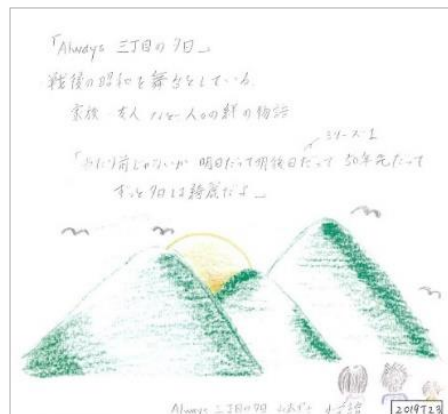 「Always 三丁目の夕日」
戦後の昭和を舞台としている
家族 友人 など 人の絆の物語
シリーズ1
「当たり前じゃないか 明日だって明後日だって 50年先だって
ずっと夕日は綺麗だよ」
Always 三丁目の夕日
2019.7.23